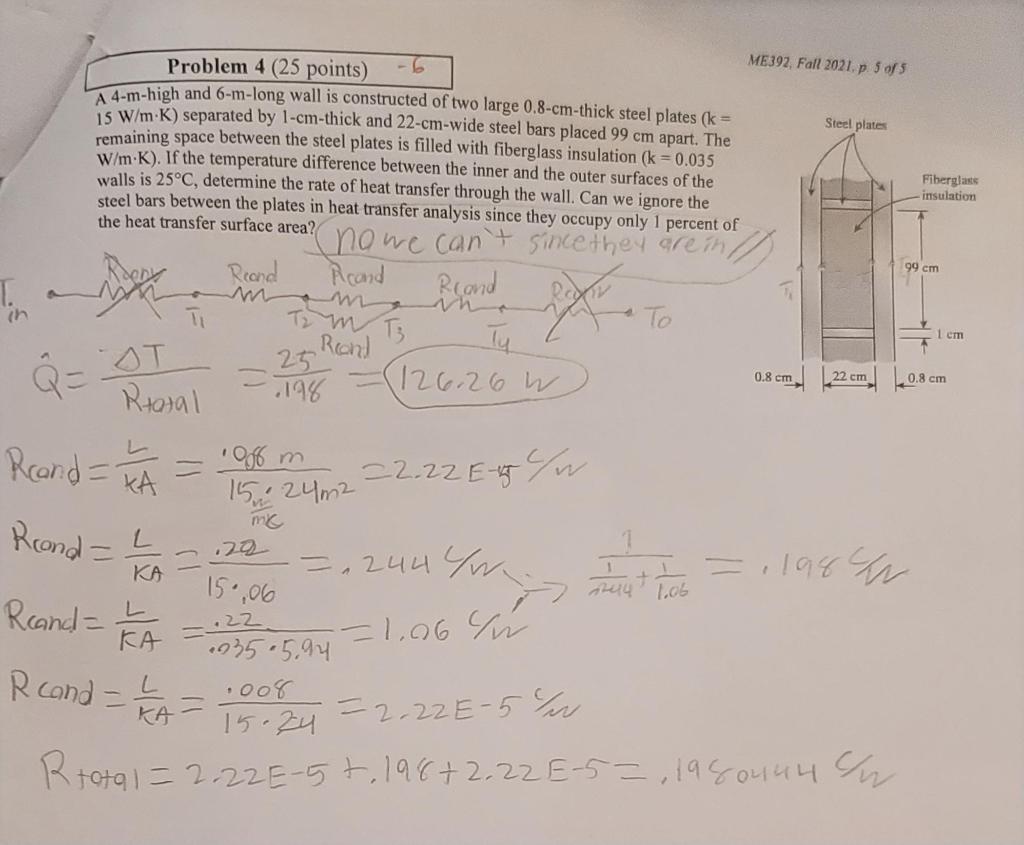 ME392, Fall 2021, p. 5 of 5
Problem 4 (25 points) -6
A 4-m-high and 6-m-long wall is constructed of two large 0.8-cm-thick steel plates (k =
15 W/m·K) separated by 1-cm-thick and 22-cm-wide steel bars placed 99 cm apart. The
remaining space between the steel plates is filled with fiberglass insulation (k = 0.035
W/m·K). If the temperature difference between the inner and the outer surfaces of the
walls is 25°C, determine the rate of heat transfer through the wall. Can we ignore the
steel bars between the plates in heat transfer analysis since they occupy only 1 percent of
the heat transfer surface area?
no we can't since they are in //
Steel plates
Fiberglass
insulation
99 cm
T1
1 cm
0.8 cm 22 cm 0.8 cm
Rconv Rcond Rcond Rcond Rconv
Tin T1 T2 T3 T4 To
Rcond
Q̇ = ΔT / Rtotal = 25 / .198 = 126.26 W
Rcond = L / KA = .008 m / 15 W/mK · 24m2 = 2.22 E-5 C/W
Rcond = L / KA = .22 / 15·.06 = .244 C/W
1 / (1/.244 + 1/1.06) = .198 C/W
Rcond = L / KA = .22 / .035·5.94 = 1.06 C/W
Rcond = L / KA = .008 / 15·24 = 2.22E-5 C/W
Rtotal = 2.22E-5 + .198 + 2.22E-5 = .1980444 C/W